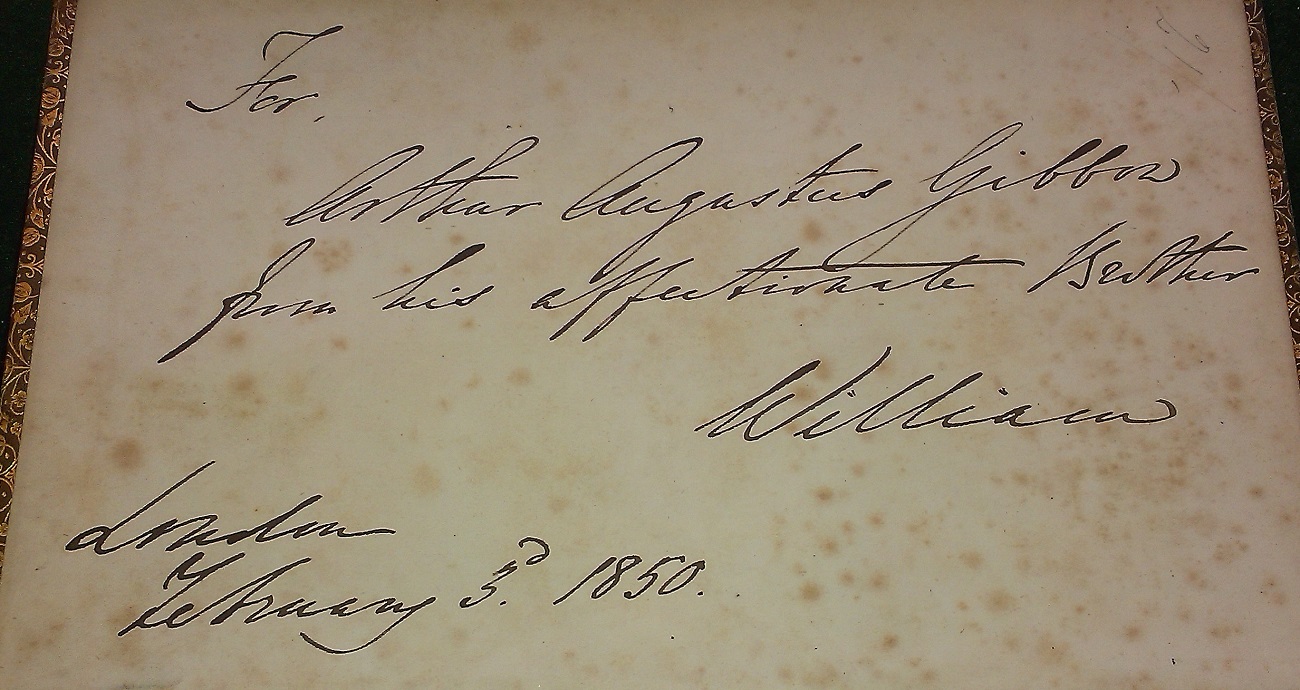 For,
Arthur Augustus Gibbon
from his affectionate Brother
William
London
February 3.d 1850.